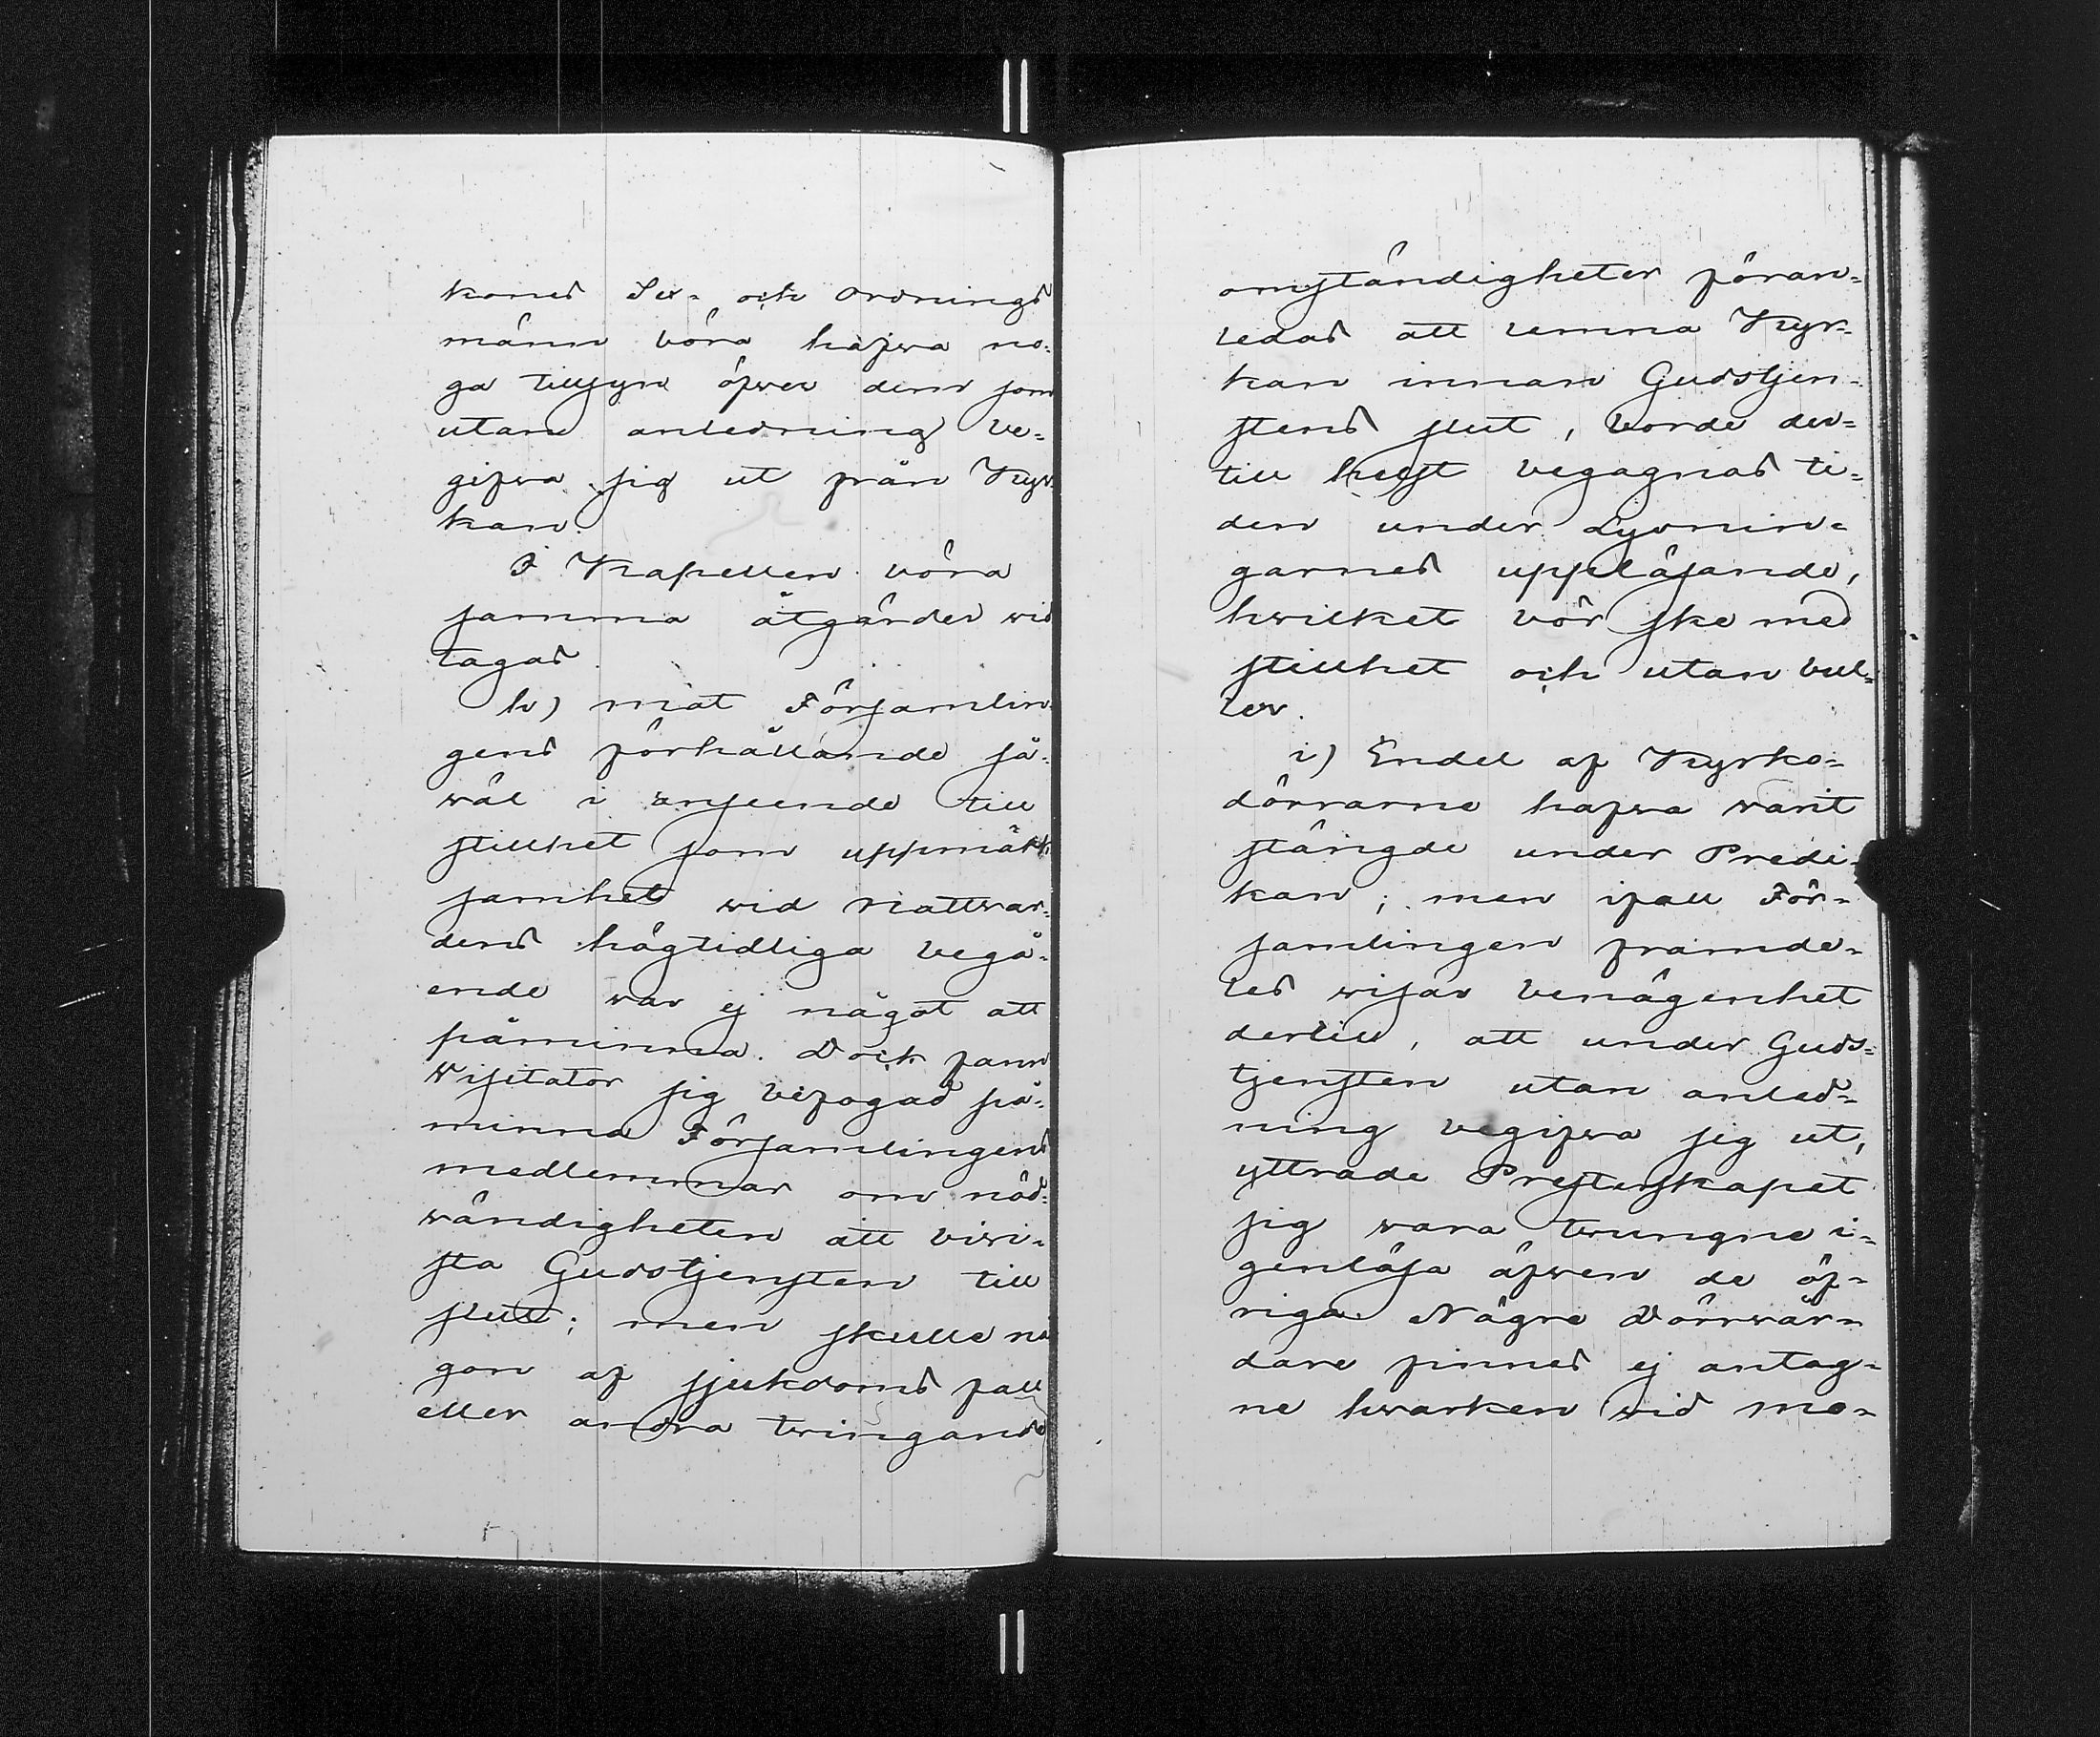 kones Sex- och Ordnings
männ böra hafwa no-
ga tillsyn öfwer dem som
utan anledning be-
gifwa sig ut från Kyr-
kan.
I Kapellen böra
samma åtgärder wid
tagas
h) mot Församlin-
gens förhållande så-
wäl i anseende till
stillhet som uppmärk-
samhet wid Nattwar-
dens högtidliga begå-
ende war ej något att
påminna. Dock fann
Wisitator sig befogad på-
minna Församlingens
medlemmar om nöd-
wändigheten att biwi-
sta Gudstjensten till
slut; men skulle nå
gon af sjukdoms fall
eller andra twingande
omständigheter föran-
ledas att lemna Kyr-
kan innan Gudstjen-
stens slut, borde der-
till helst begagnas ti-
den under Lysnin-
garnes uppläsande,
hwilket bör ske med
stillhet och utan bul-
ler.
i) Endel af Kyrko-
dörrarne hafwa warit
stängde under Predi-
kan; men ifall För-
samlingen framde-
les wisar benägenhet
dertill, att under Guds-
tjensten utan anled-
ning begifwa sig ut,
yttrade Presterskapet
sig wara twungne i-
genlåsa äfwen de öf-
riga. Någre Dörrwär-
dare finnes ej antag-
ne hwarken wid mo-